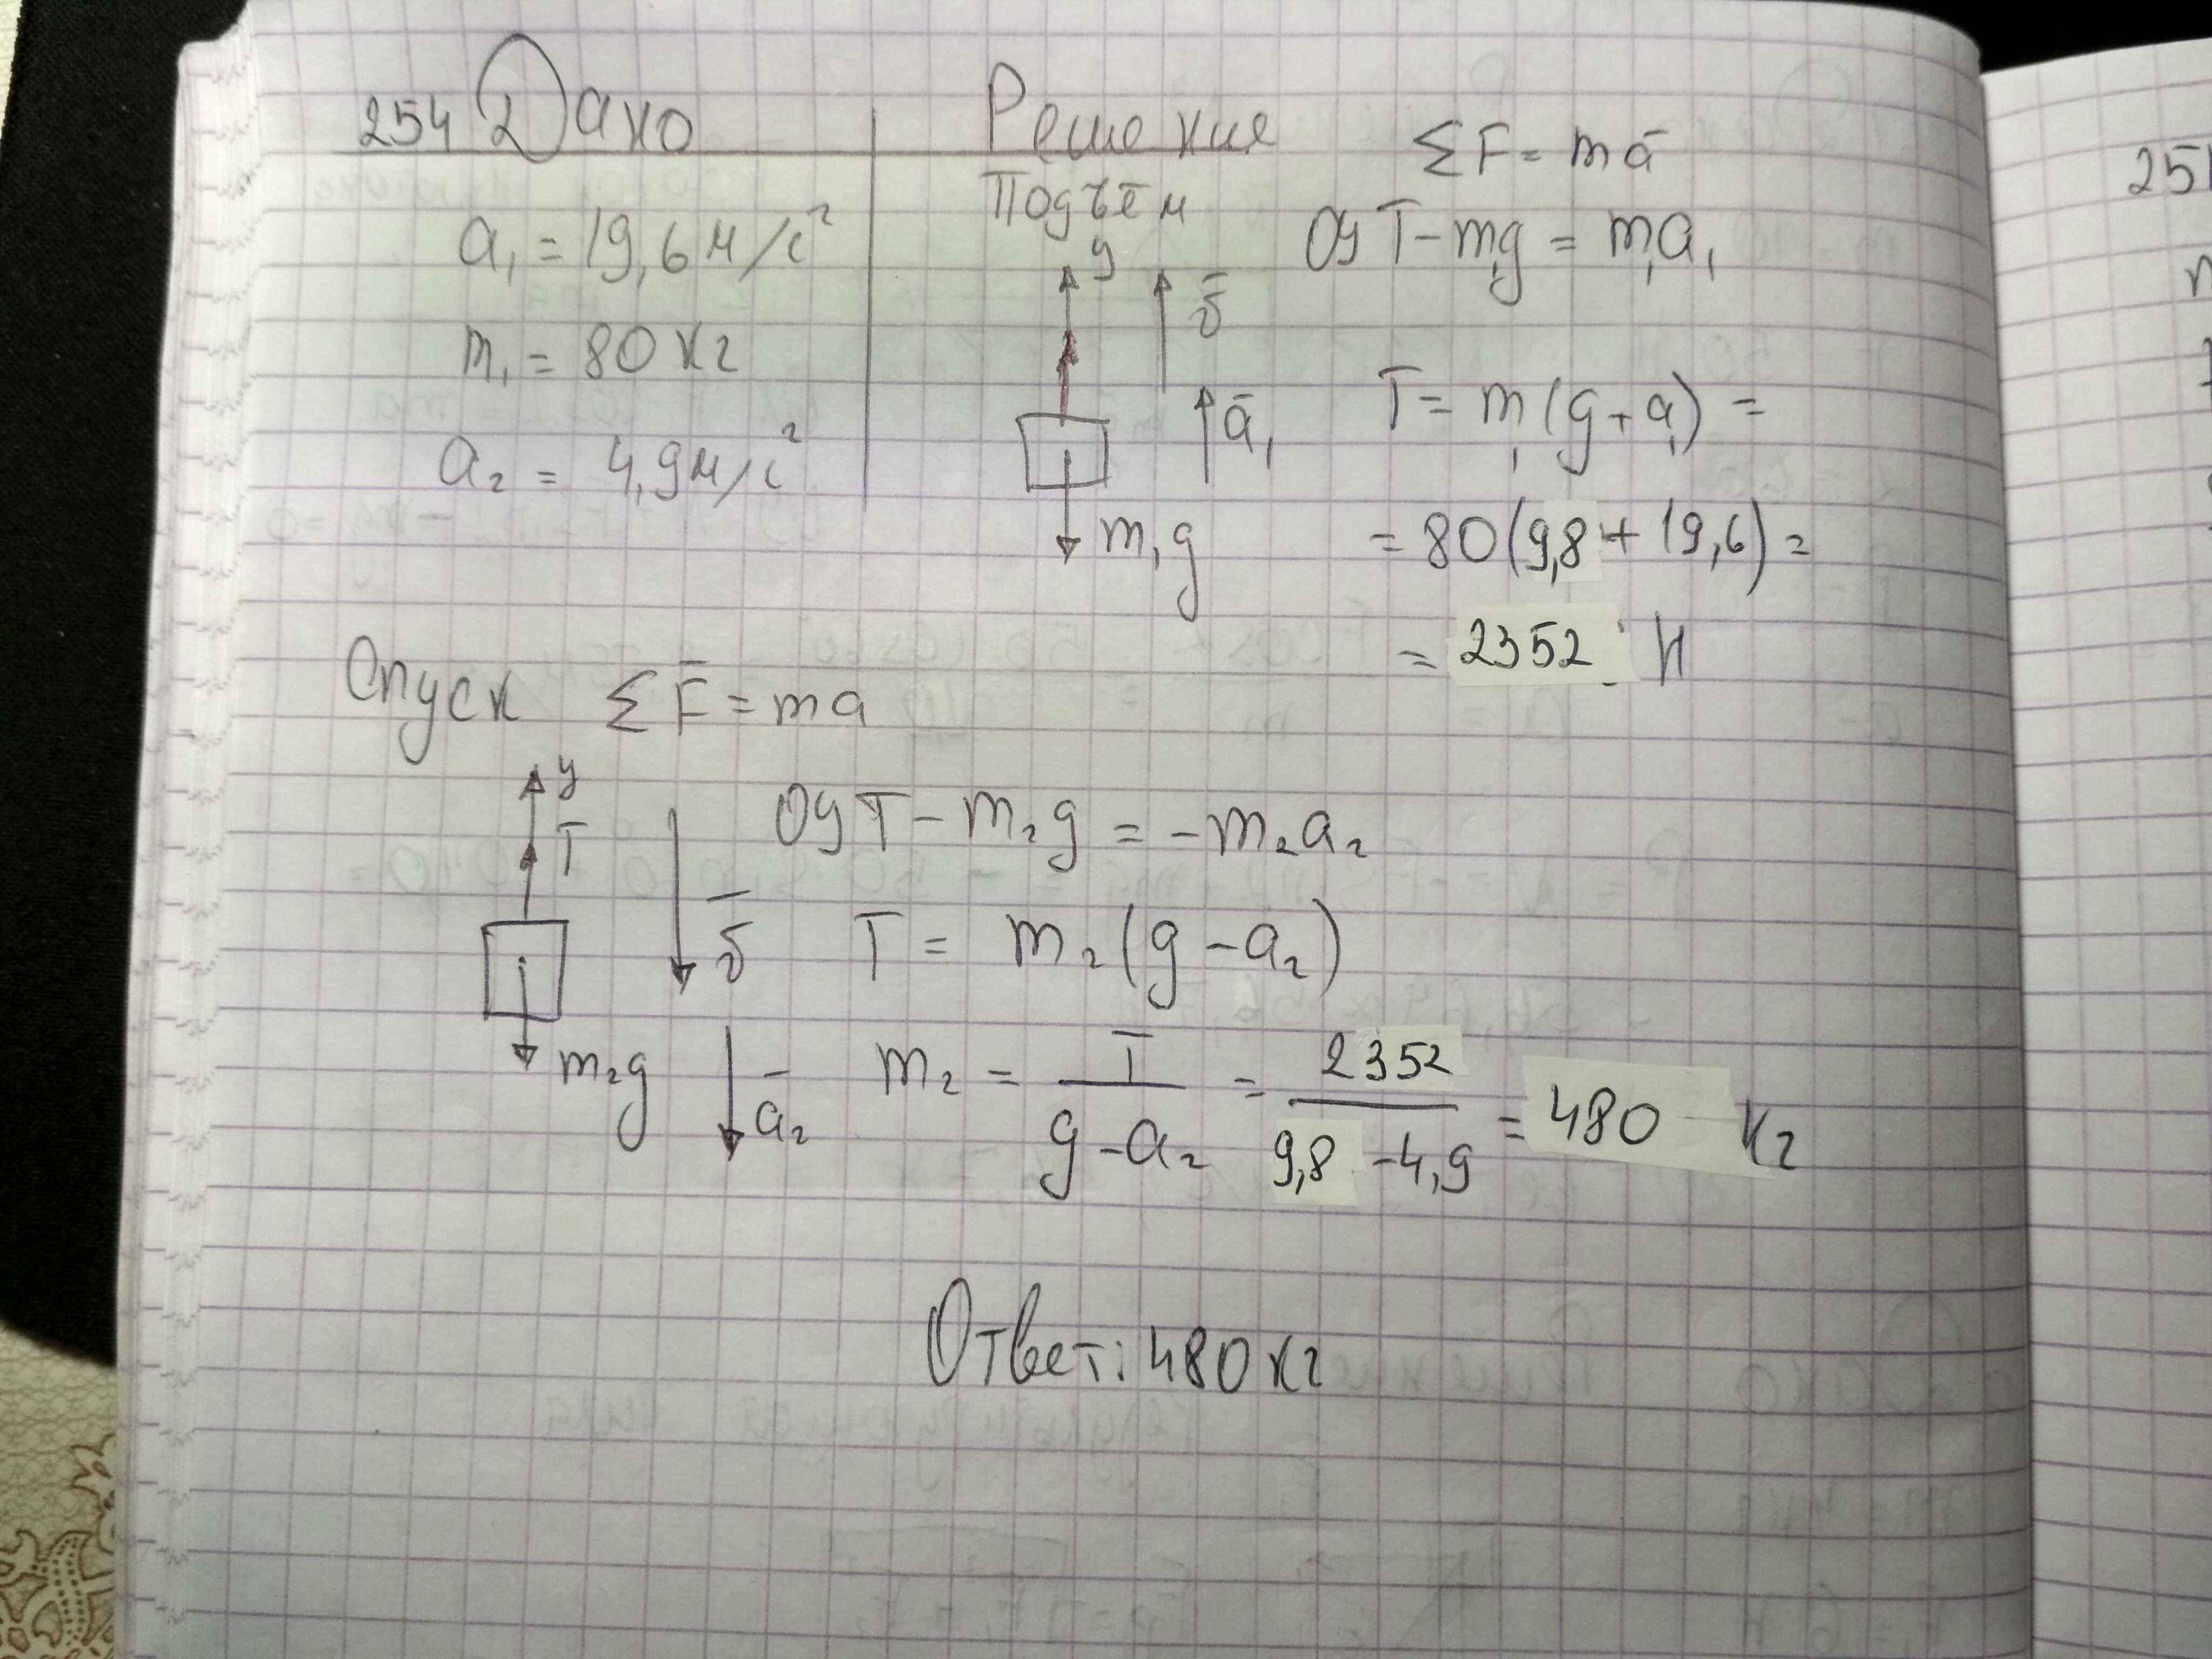 254 Дано
a₁ = 19,6 м/с²
m₁ = 80 кг
a₂ = 4,9 м/с²
Решение
Подъём
y
v̄
ā₁
m₁g
ΣF = mā
Oy T - m₁g = m₁a₁
T = m₁(g + a₁) =
= 80(9,8 + 19,6) =
= 2352 Н
Спуск ΣF̄ = ma
y
T
v̄
m₂g
ā₂
Oy T - m₂g = -m₂a₂
T = m₂(g - a₂)
m₂ = T / (g - a₂) = 2352 / (9,8 - 4,9) = 480 кг
Ответ: 480 кг